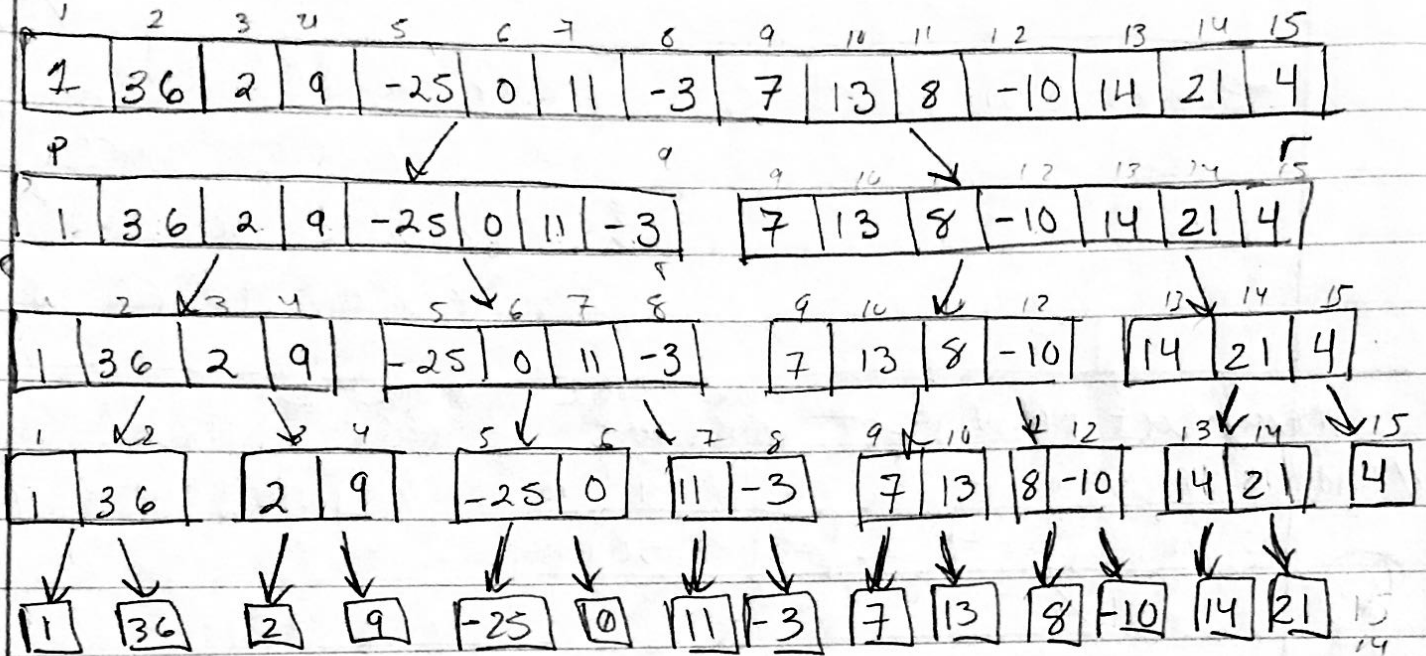 1 2 3 4 5 6 7 8 9 10 11 12 13 14 15
1 36 2 9 -25 0 11 -3 7 13 8 -10 14 21 4
P 9 r
9 10 11 12 13 14 15
1 36 2 9 -25 0 11 -3 7 13 8 -10 14 21 4
8
2 3 4 5 6 7 8 9 10 12 13 14 15
1 36 2 9 -25 0 11 -3 7 13 8 -10 14 21 4
1 2 3 4 5 6 7 8 9 10 11 12 13 14 15
1 36 2 9 -25 0 11 -3 7 13 8 -10 14 21 4
1 36 2 9 -25 0 11 -3 7 13 8 -10 14 21
14